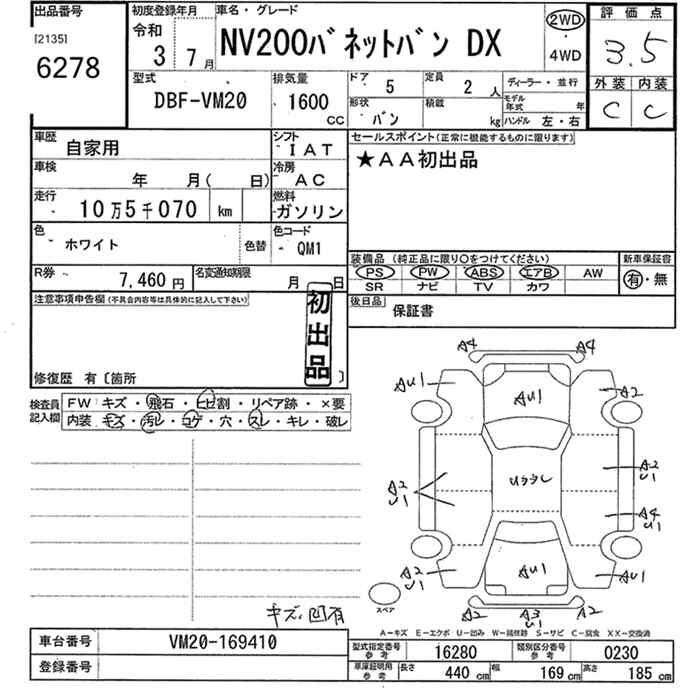 出品番号 初度登録年月 車名・グレード 評価点
[2135] 6278 令和 3年 7月 NV200バネットバン DX 2WD・4WD 3.5
型式 DBF-VM20 排気量 1600 CC ドア 5 定員 2人 ディーラー・並行 外装 内装
形状 バン 積載 kg モデル年式 年 ハンドル 左・右 C C
車歴 自家用 シフト IAT セールスポイント(正常に機能するものに限ります)
車検 年 月( 日) 冷房 AC ★AA初出品
走行 10万5千070 km 燃料 ガソリン
色 ホワイト 色替 色コード QM1
装備品(純正品に限り〇をつけてください) 新車保証書
R券 7,460円 名変通知期限 月 日 PS PW ABS エアB AW 有・無
SR ナビ TV カワ
注意事項申告欄(不具合内容等は具体的に記入して下さい) 後日品 保証書
初出品
修復歴 有〔箇所 〕
検査員記入欄 FW: キズ・飛石・ヒビ割・リペア跡・×要
内装: キズ・汚レ・コゲ・穴・スレ・キレ・破レ
A4 A4
AU1 AU1 A2
A2 U1 Uララレ A2 U1
A4 U1
A2 U1 AU1 AU1
スペア A2 A3 U1 A2
キズ、凹有
A-キズ E-エクボ U-凹み W-補修跡 S-サビ C-腐食 XX-交換済
車台番号 VM20-169410 型式指定番号 参考 16280 類別区分番号 参考 0230
登録番号 車庫証明用 参考 長さ 440 cm 幅 169 cm 高さ 185 cm